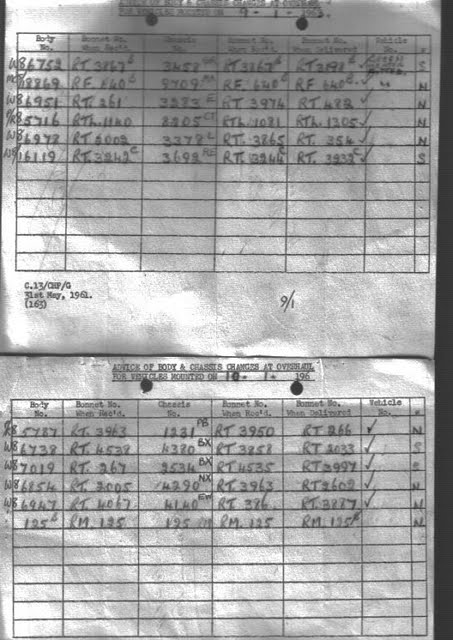 ADVICE OF BODY & CHASSIS CHANGES AT OVERHAUL
FOR VEHICLES MOUNTED ON 9 - 1 - 1963.
Body No. Bonnet No. When Rec'd. Chassis No. Bonnet No. When Rec'd. Bonnet No. When Delivered Vehicle No.
W8 6752 RT 3867 3458 RT 3867 RT 2198 ✓ S
8869 RF. 640 9709 RF. 640 RF 640 ✓ N
W8 6951 RT. 261 3283 E RT 3974 RT 482 ✓ N
5716 RTL. 1140 8205 CT RTL. 1081 RTL. 1305 ✓ N
W8 6978 RT 2009 3378 L RT. 3865 RT. 354 ✓ N
16119 RT. 3242 C 3692 RE RT. 3244 C RT. 3232 C ✓ S
C.13/CHF/G
31st May, 1961.
(163)
9/1
ADVICE OF BODY & CHASSIS CHANGES AT OVERHAUL
FOR VEHICLES MOUNTED ON 10 - 1 - 196
Body No. Bonnet No. When Rec'd. Chassis No. Bonnet No. When Rec'd. Bonnet No. When Delivered Vehicle No.
5787 RT. 3963 1231 PB RT 3950 RT 266 ✓ N
W8 6738 RT. 4538 4380 BX RT 3858 RT 2033 ✓ S
W8 7019 RT. 267 2534 BX RT 4535 RT 3997 ✓ S
W8 6854 RT 2005 4290 NX RT 3963 RT 2602 ✓ N
W8 6947 RT 4067 4140 EW RT 386 RT. 3887 ✓ N
125 RM. 125 125 RM. 125 RM. 125 N